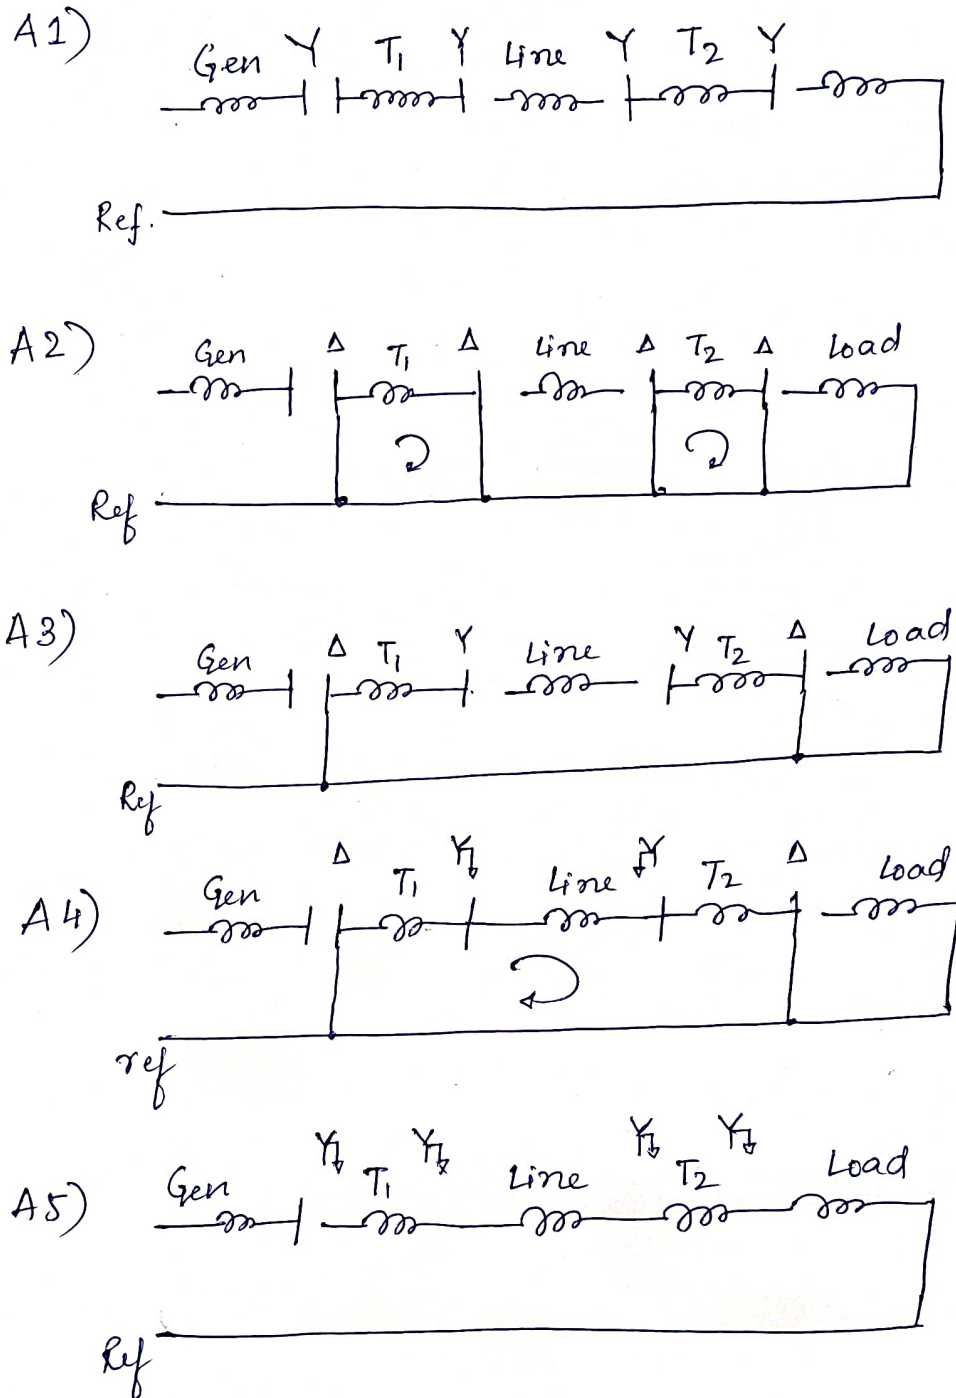 A1)
Gen Y T1 Y Line Y T2 Y
Ref.
A2)
Gen Δ T1 Δ Line Δ T2 Δ Load
Ref
A3)
Gen Δ T1 Y Line Y T2 Δ Load
Ref
A4)
Gen Δ T1 Y Line Y T2 Δ Load
ref
A5)
Gen Y T1 Y Line Y T2 Y Load
Ref